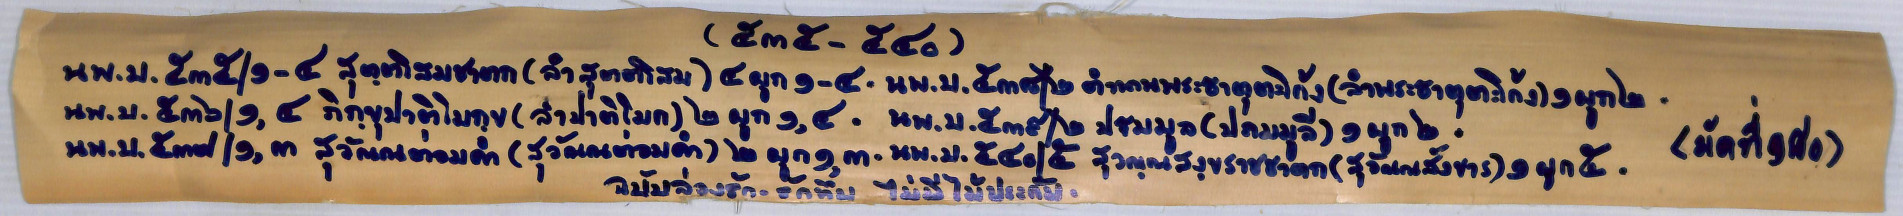 (๕๓๕ - ๕๔๐)
นพ.บ. ๕๓๕/๑-๔ สุตฺตโสมชาตก (ลำสุตตโสม) ๔ ผูก ๑-๔. นพ.บ. ๕๓๘/๒ ตำนานพระธาตุตะโก้ง (ลำพระธาตุตะโก้ง) ๑ ผูก ๒.
นพ.บ. ๕๓๖/๑, ๔ ภิกฺขุปาติโมกฺข (ลำปาติโมก) ๒ ผูก ๑, ๔. นพ.บ. ๕๓๙/๒ ปฐมมูล (ปถมมูลี) ๑ ผูก ๒.
นพ.บ. ๕๓๗/๑, ๓ สุวัณณหอมคำ (สุวัณณหอมคำ) ๒ ผูก ๑, ๓. นพ.บ. ๕๔๐/๕ สุวณฺณสงฺขราชชาตก (สุวัณณสังขาร) ๑ ผูก ๕.
(มัดที่ ๑๘๐)
ฉบับล่องรัก-รักทึบ ไม่มีไม้ประกับ.